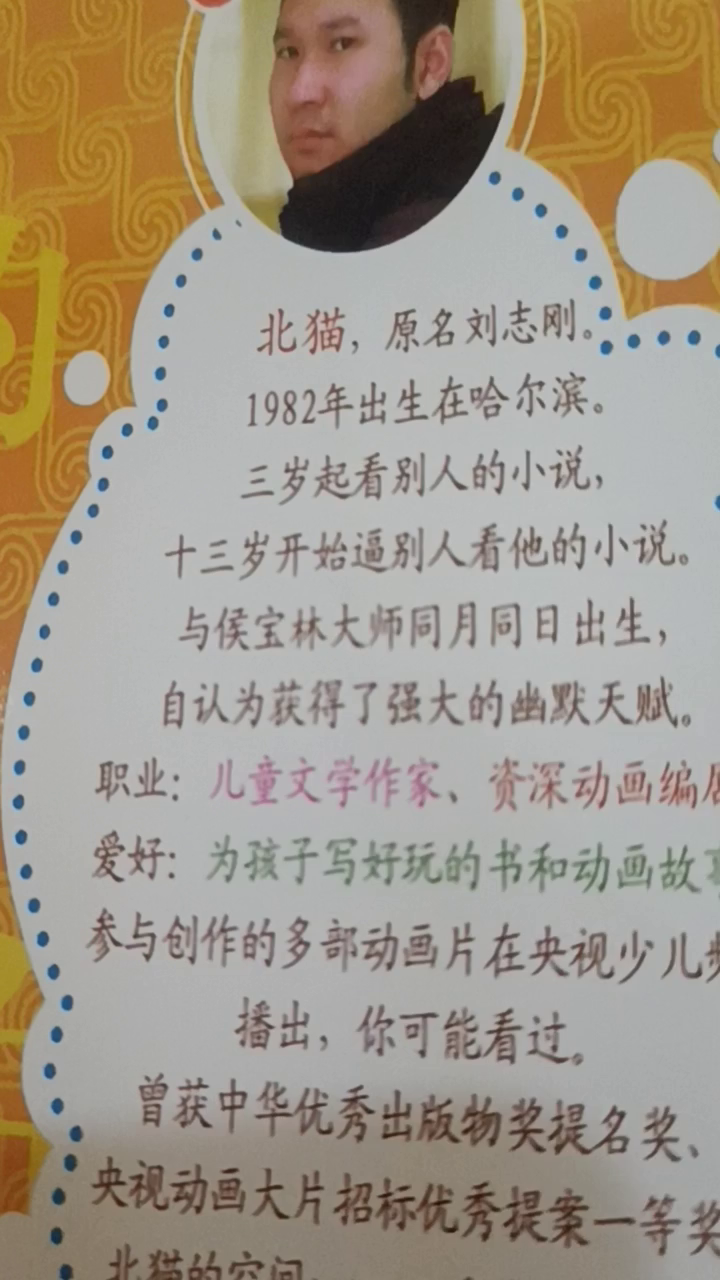 北猫，原名刘志刚。
1982年出生在哈尔滨。
三岁起看别人的小说，
十三岁开始逼别人看他的小说。
与侯宝林大师同月同日出生，
自认为获得了强大的幽默天赋。
职业：儿童文学作家、资深动画编剧
爱好：为孩子写好玩的书和动画故事
参与创作的多部动画片在央视少儿频
播出，你可能看过。
曾获中华优秀出版物奖提名奖、
央视动画大片招标优秀提案一等奖
北猫的空间